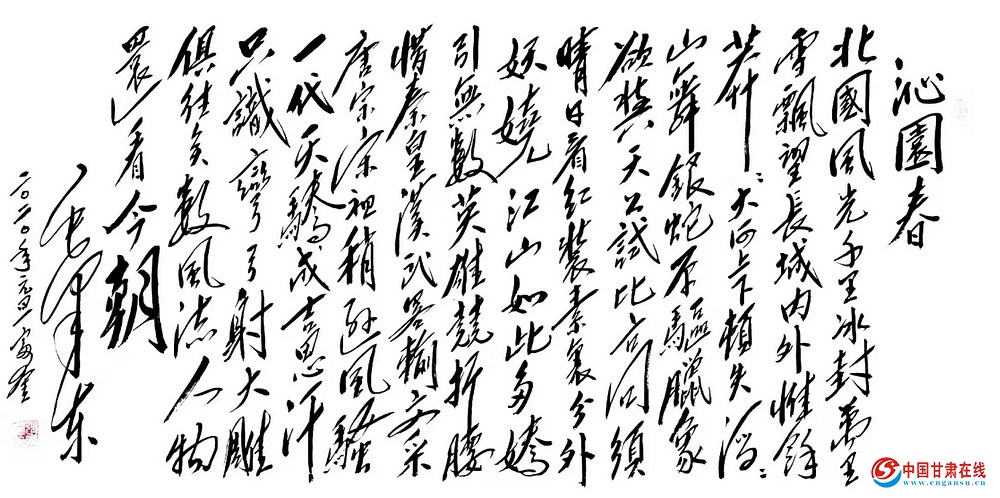 沁園春
北國風光千里冰封萬里
雪飄望長城內外惟餘
莽〻大河上下頓失滔〻
山舞銀蛇原驅臘象
欲與天公試比高須
晴日看紅裝素裹分外
妖嬈江山如此多嬌
引無數英雄競折腰
惜秦皇漢武略輸文采
唐宗宋祖稍遜風騷
一代天驕成吉思汗
只識彎弓射大雕
俱往矣數風流人物
還看今朝
毛澤東
二〇二〇年元旦
中国甘肃在线
www.cngansu.cn